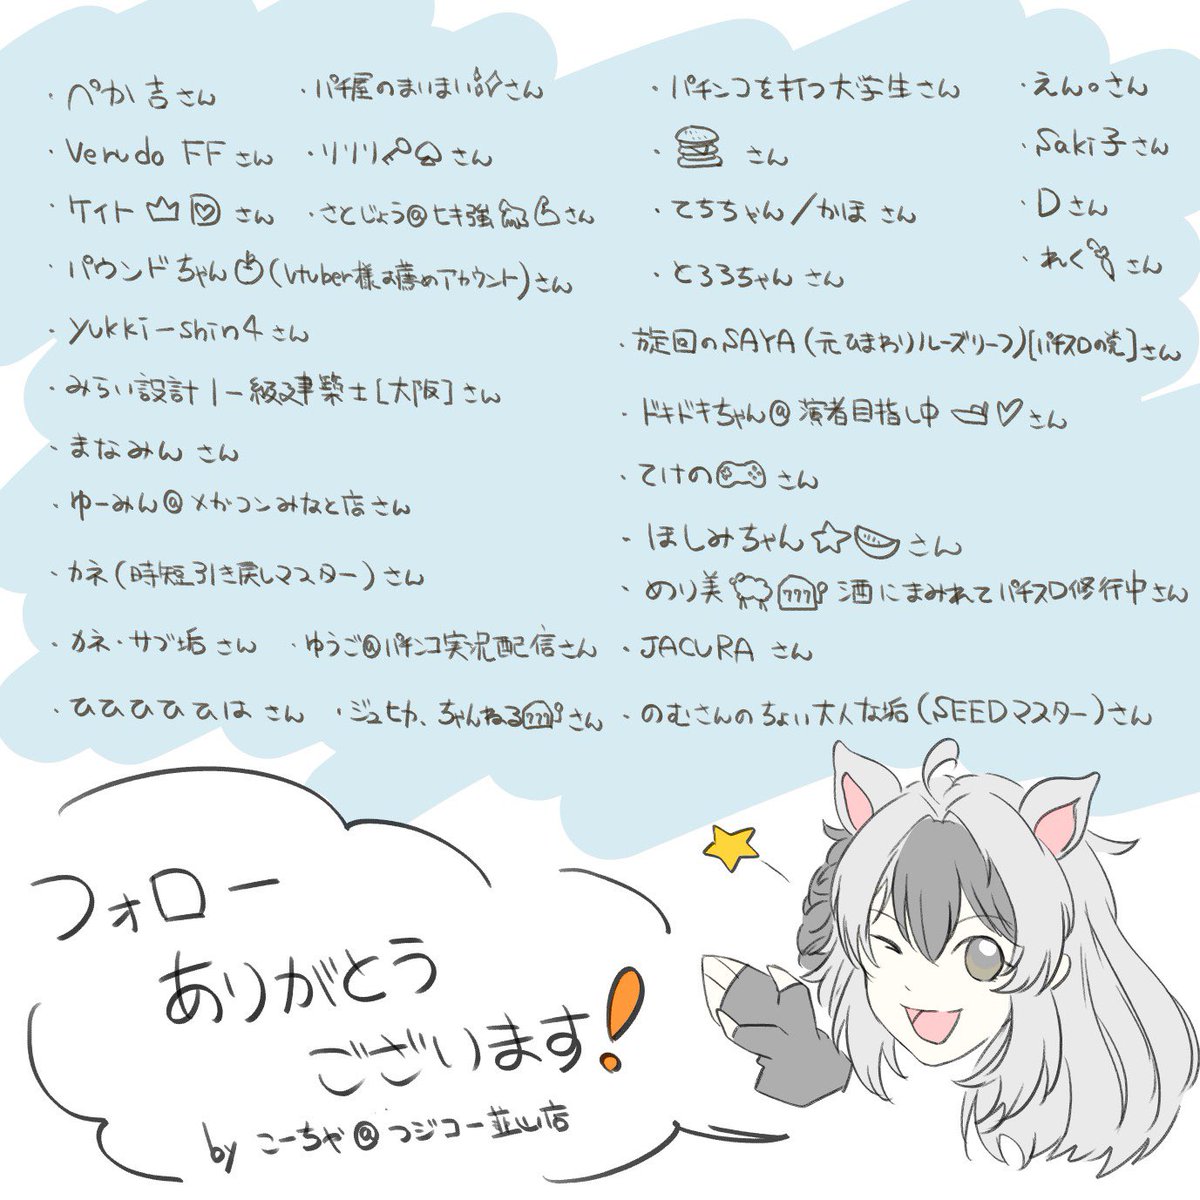 ・ぺか吉さん
・パチ屋のまいまいさん
・Verudo FFさん
・リリリさん
・ケイトさん
・さとじょう@ヒキ強さん
・パウンドちゃん(Vtuber様お薦めアカウント)さん
・yukki-shin4さん
・みらい設計|一級建築士[大阪]さん
・まなみんさん
・ゆーみん@メガコンみなと店さん
・カネ(時短引き戻しマスター)さん
・カネ・サブ垢さん
・ゆうご@パチンコ実況配信さん
・ひひひひひはさん
・ジュヒカ、ちゃんねる777さん
・パチンコを打つ大学生さん
・さん
・てちちゃん/かほさん
・とろろちゃんさん
・えん。さん
・Saki子さん
・Dさん
・れくさん
・旋回のSAYA(元ひまわりルーズリーフ)[パチスロの党]さん
・ドキドキちゃん@演者目指し中さん
・てけのさん
・ほしみちゃんさん
・めり美777酒にまみれてパチスロ修行中さん
・JACURAさん
・のむさんのちょい大人な垢(SEEDマスター)さん
フォロー
ありがとう
ございます!
by こーちゃ@フジコー韮山店